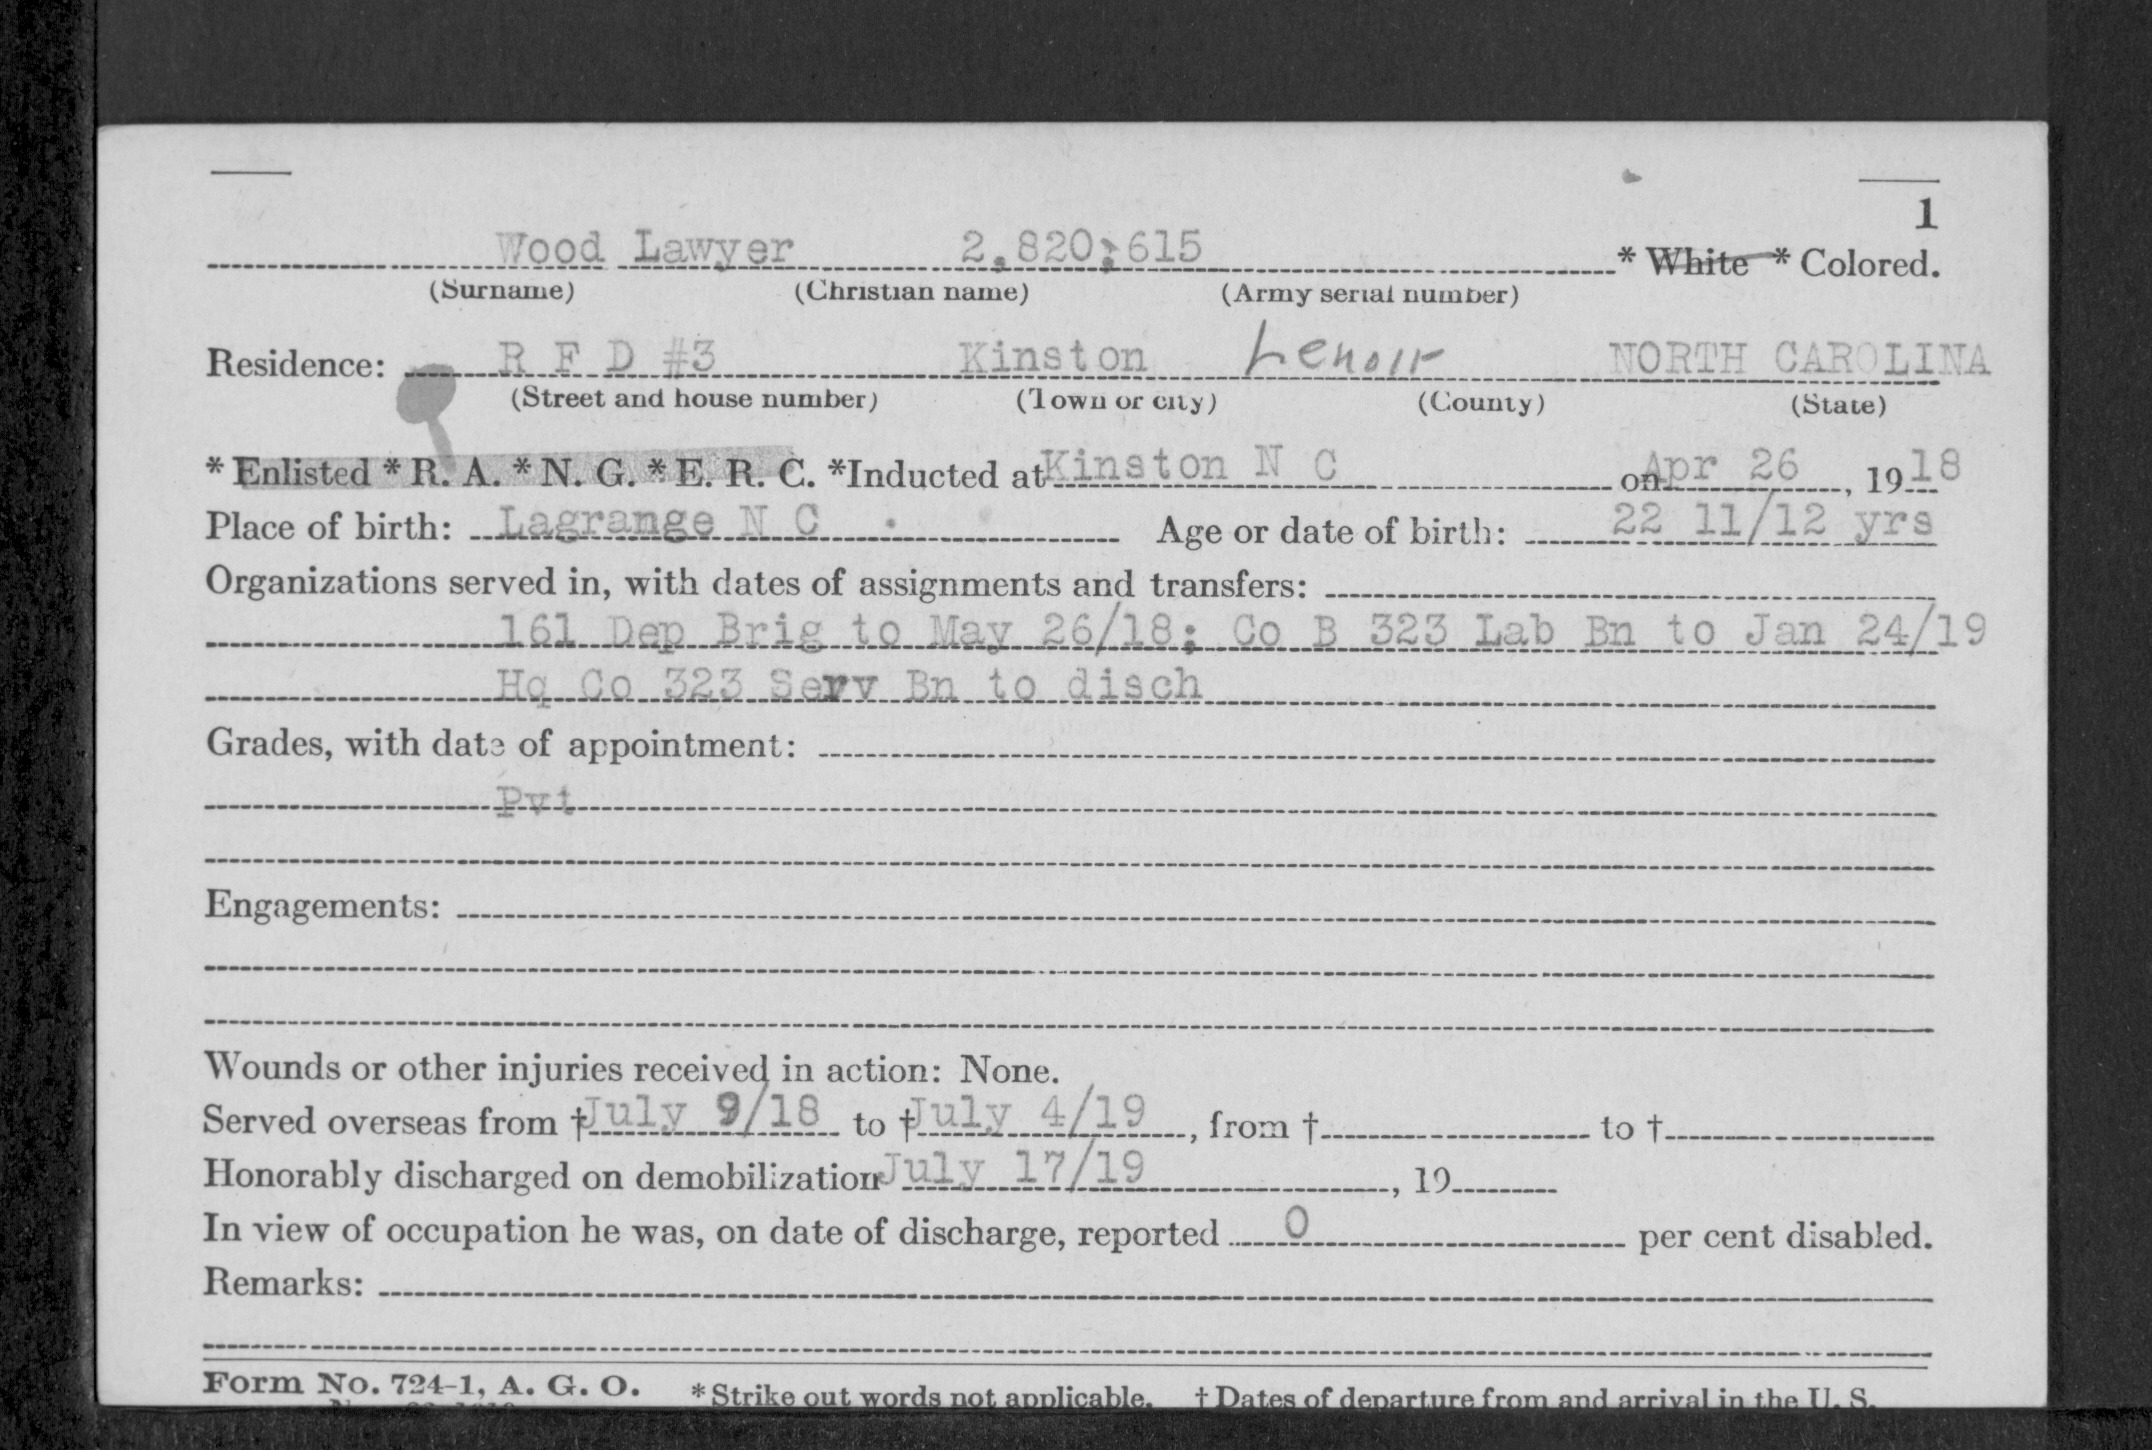 1
Wood Lawyer 2,820,615 * White * Colored.
(Surname) (Christian name) (Army serial number)
Residence: R F D #3 Kinston Lenoir NORTH CAROLINA
(Street and house number) (Town or city) (County) (State)
* Enlisted * R. A. * N. G. * E. R. C. *Inducted at Kinston N C on Apr 26, 1918
Place of birth: Lagrange N C Age or date of birth: 22 11/12 yrs
Organizations served in, with dates of assignments and transfers:
161 Dep Brig to May 26/18; Co B 323 Lab Bn to Jan 24/19
Hq Co 323 Serv Bn to disch
Grades, with date of appointment:
Pvt
Engagements:
Wounds or other injuries received in action: None.
Served overseas from † July 9/18 to † July 4/19, from † to †
Honorably discharged on demobilization July 17/19, 19
In view of occupation he was, on date of discharge, reported 0 per cent disabled.
Remarks:
Form No. 724-1, A. G. O. * Strike out words not applicable. † Dates of departure from and arrival in the U. S.